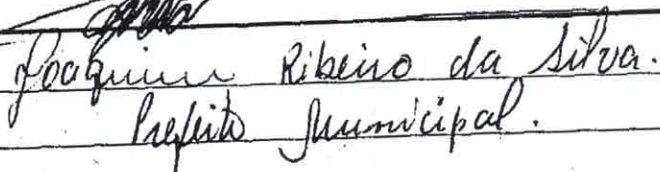 Joaquim Ribeiro da Silva.
Prefeito Municipal.